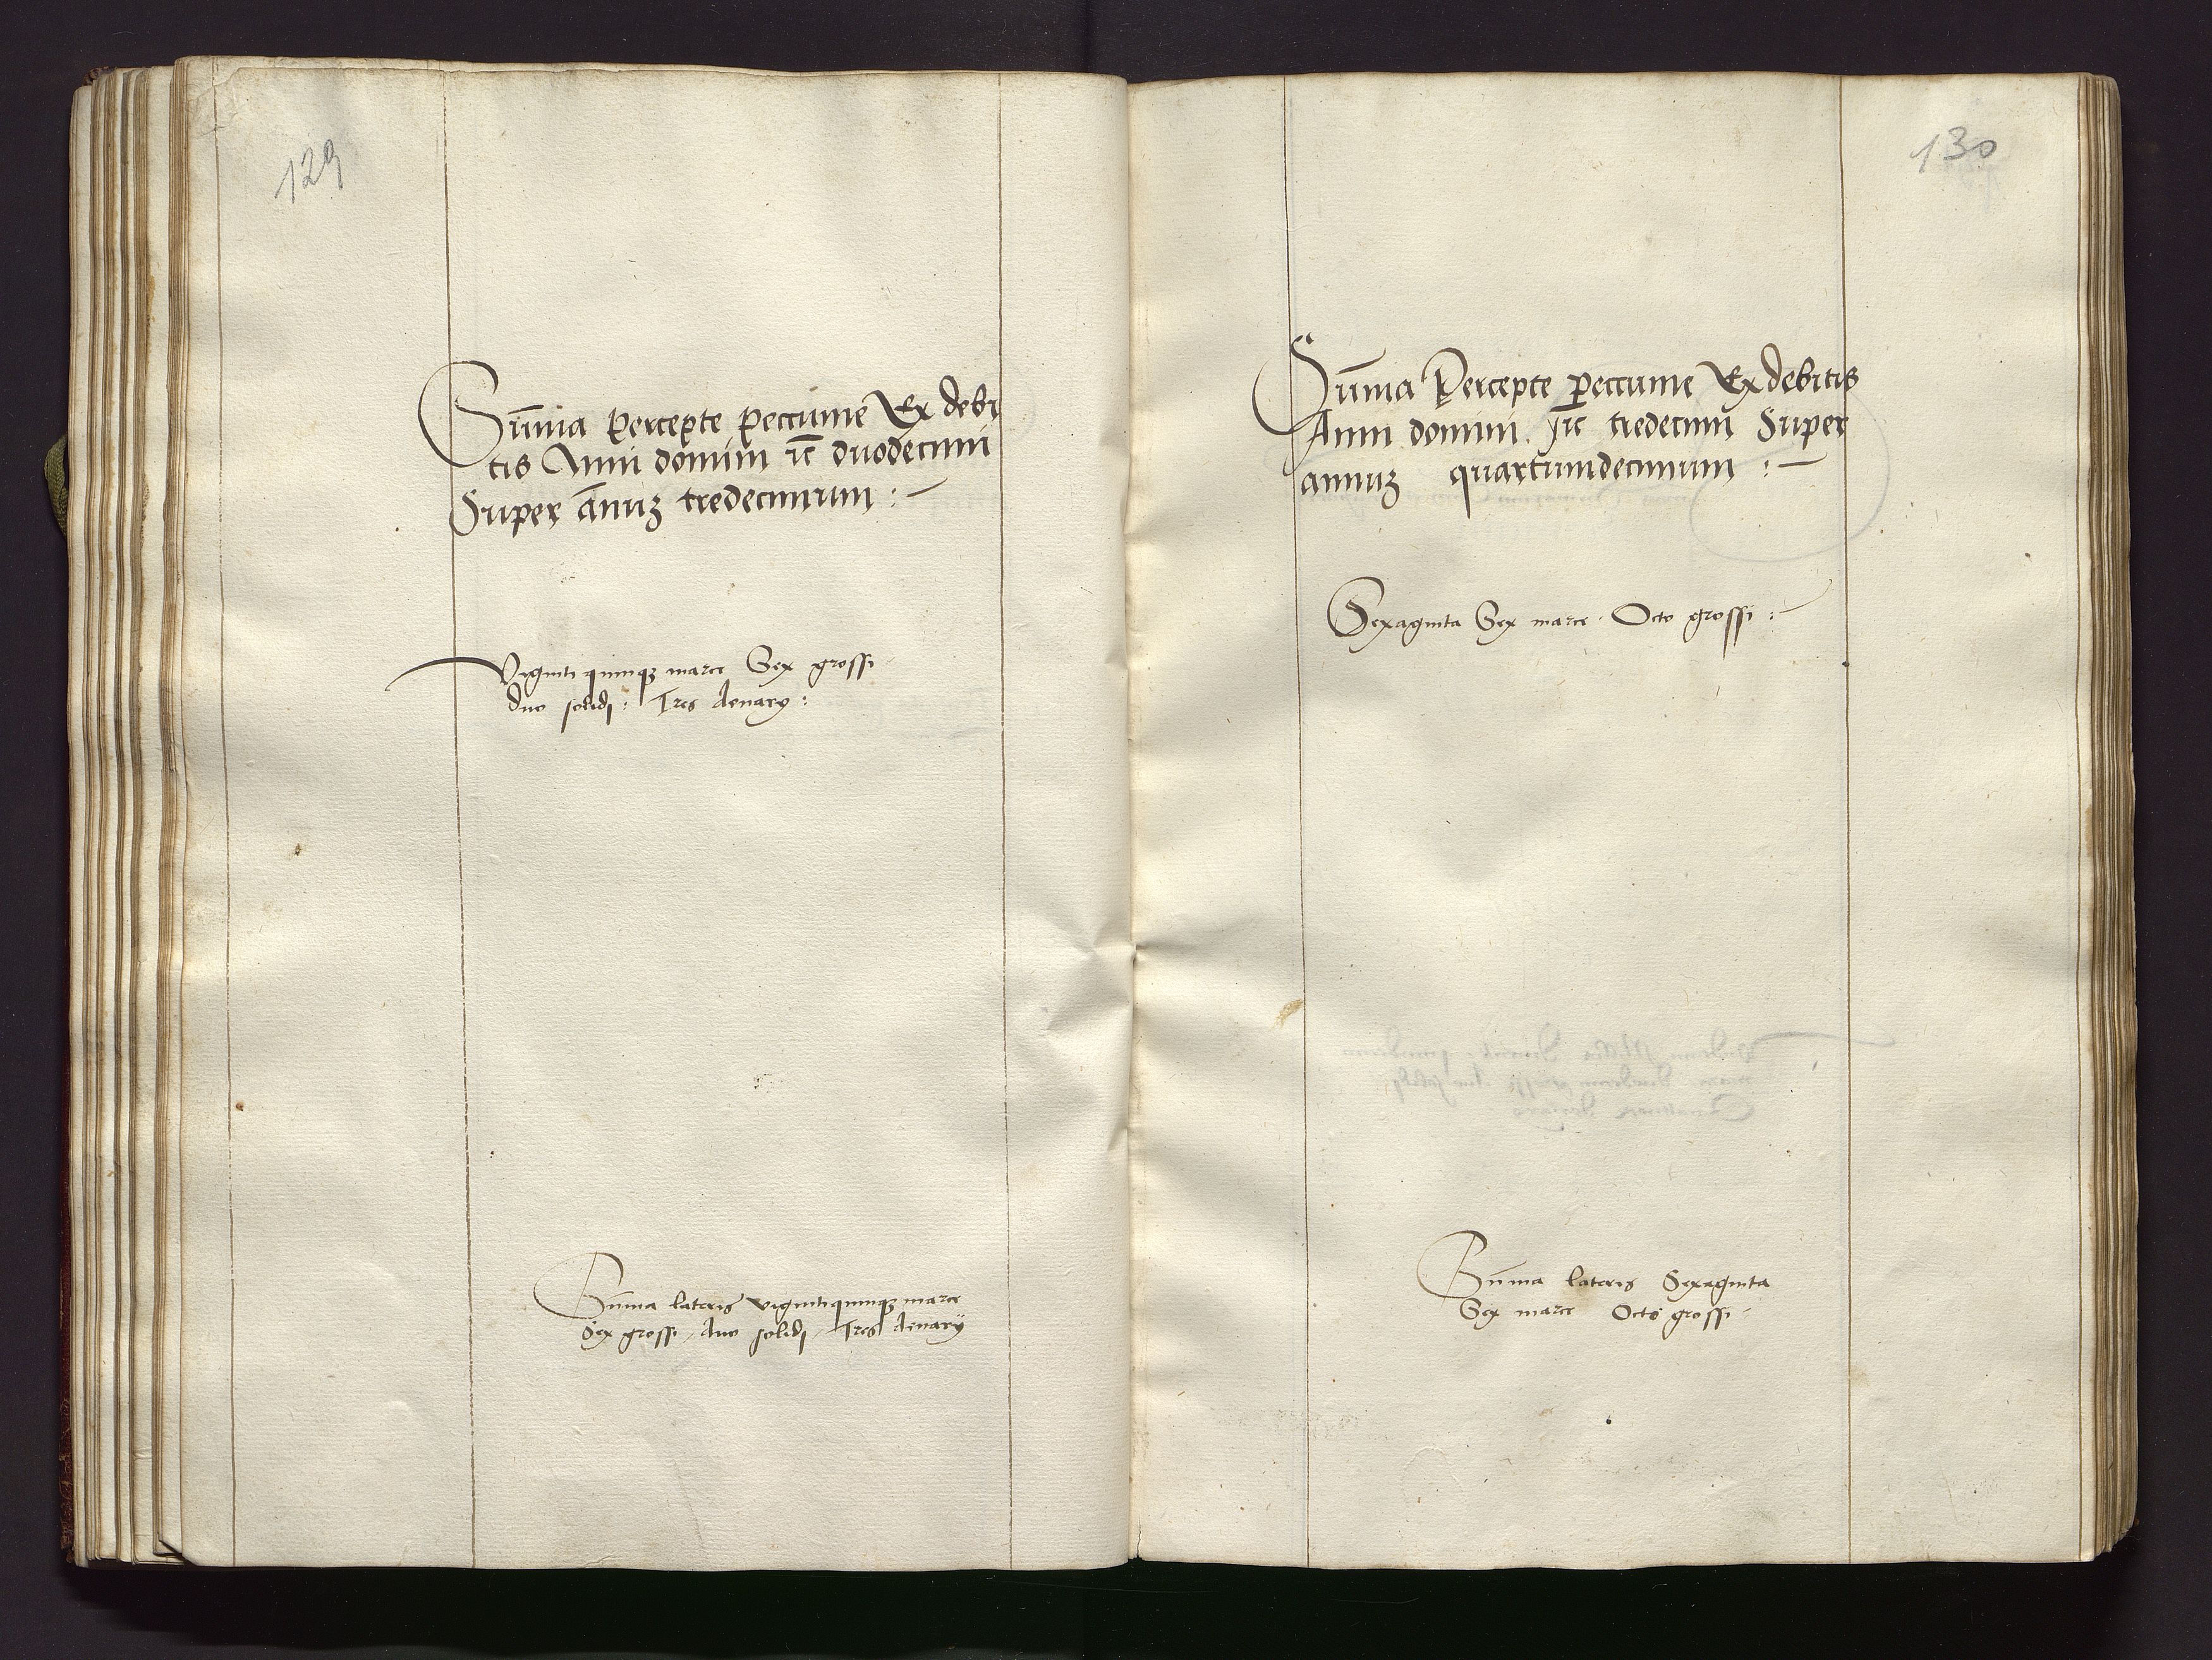 129
Sūma percepte peccunie Ex debi
tis Anni domini ꝛc̄ duodecimi
Super ānuꝫ tredecimum :-
Viginti quinqꝫ marce Sex grossi
duo solidi : Tres denarÿ :
Sūma lateris vigintiquinqꝫ marce
Sex grossi, duo solidi, Tres denarÿ
130
Sūma Percepte peccunie Ex debitis
Anni domini ꝛc̄ tredecimi Super
annuꝫ quartumdecimum :-
Sexaginta Sex marce . Octo grossi :-
Sūma lateris Sexaginta
Sex marce Octo grossi